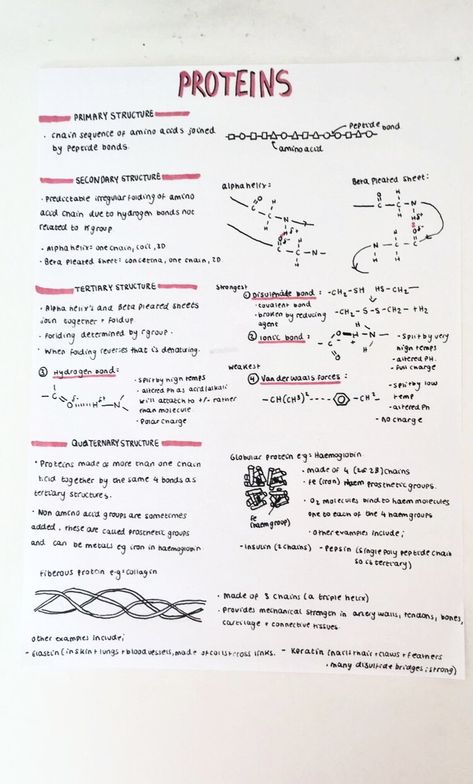 PROTEINS
PRIMARY STRUCTURE
· chain sequence of amino acids joined
by peptide bonds.
peptide bond
amino acid
SECONDARY STRUCTURE
· Predictable irregular folding of amino
acid chain due to hydrogen bonds not
related to R group.
· Alpha helix: one chain, coil, 3D
· Beta Pleated Sheet: concetina, one chain, 2D
alpha helix:
Beta pleated sheet:
TERTIARY STRUCTURE
· Alpha helix's and Beta pleated sheets
join together + fold up.
· Folding determined by r group.
· When folding reverses that is denaturing.
strongest
① Disulphide bond:
· covalent bond
· broken by reducing
agent
-CH₂-SH HS-CH₂-
-CH₂-S-S-CH₂- + H₂
② Ionic bond:
- split by very
high temps
- altered PH.
- full charge
③ Hydrogen bond:
- split by high temps
- altered Ph as acid/alkali
will attach to +/- rather
than molecule
- Polar charge
weakest
④ Van der waals forces:
-CH(CH³)²
-CH²-
- split by low
temp
- altered PH
- no charge
QUATERNARY STRUCTURE
· Proteins made of more than one chain
held together by the same 4 bonds as
tertiary structures.
· Non amino acid groups are sometimes
added, these are called prosthetic groups
and can be metals eg iron in haemoglobin
Globular protein eg = Haemoglobin
· made of 4 (2α 2β) chains
· Fe (iron) Haem prosthetic groups.
· O₂ molecules bind to haem molecules
one to each of the 4 haem groups
Fe
(haem group)
· other examples include;
- Insulin (2 chains) - Pepsin (single poly peptide chain
so is tertiary)
Fiberous protein eg = collagin
· made of 3 chains (a triple helix)
· Provides mechanical strength in artery walls, tendons, bones,
cartilage + connective tissues.
other examples include;
- Elastin (in skin + lungs + blood vessels, made of coils + cross links. - Keratin (nails + hair + claws + feathers
· many disulfide bridges: strong)